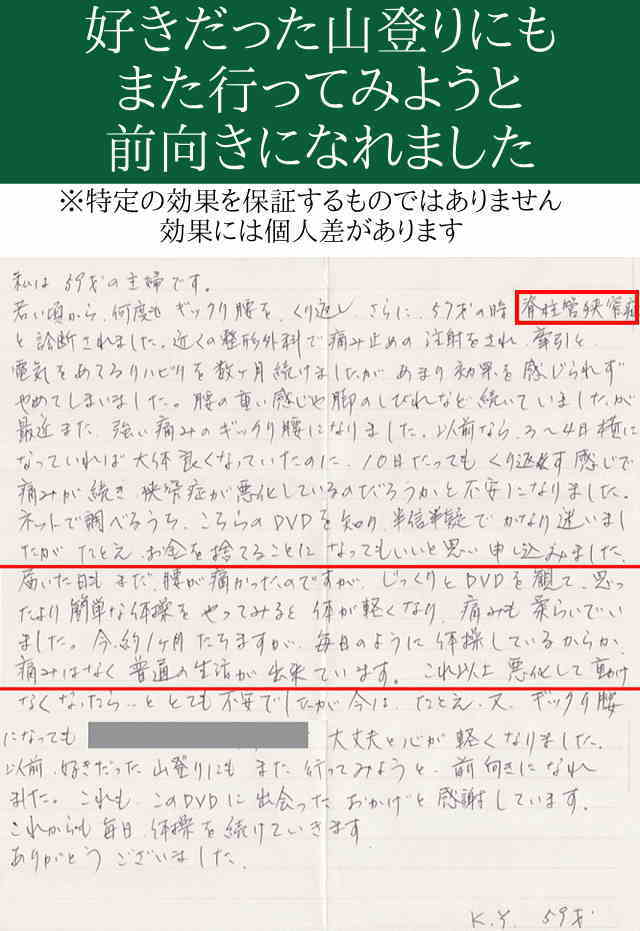 好きだった山登りにも
また行ってみようと
前向きになれました
※特定の効果を保証するものではありません
効果には個人差があります
私は59才の主婦です。
若い頃から、何度も ギックリ腰を、くり返し さらに、57才の時 脊柱管狭窄症
と診断されました。近くの整形外科で痛み止めの注射をされ、牽引と、
電気をあてるリハビリを数ヶ月続けましたが あまり効果を感じられず
やめてしまいました。腰の重い感じや脚のしびれなど続いていましたが
最近また、強い痛みのギックリ腰になりました。以前なら、3〜4日横に
なっていれば大体良くなっていたのに、10日たっても くり返す感じで
痛みが続き、狭窄症が悪化しているのだろうかと不安になりました。
ネットで調べるうち、こちらのDVDを知り、半信半疑でかなり迷いまし
たが たとえ、お金を捨てることになってもいいと思い申し込みました。
届いた日も まだ、腰が痛かったのですが、じっくりとDVDを観て、思っ
たより簡単な体操を やってみると 体が軽くなり、痛みも柔らいでい
ました。今、約1ヶ月たちますが、毎日のように体操しているからか、
痛みはなく普通の生活が出来ています。これ以上悪化して動け
なくなったら…と とても不安でしたが 今は、たとえ、又、ギックリ腰
になっても 大丈夫と心が軽くなりました。
以前、好きだった山登りにも また行ってみようと、前向きになれ
ました。これも、このDVDに出会ったおかげと感謝しています。
これからも毎日、体操を続けていきます
ありがとう ございました。
K.Y. 59才